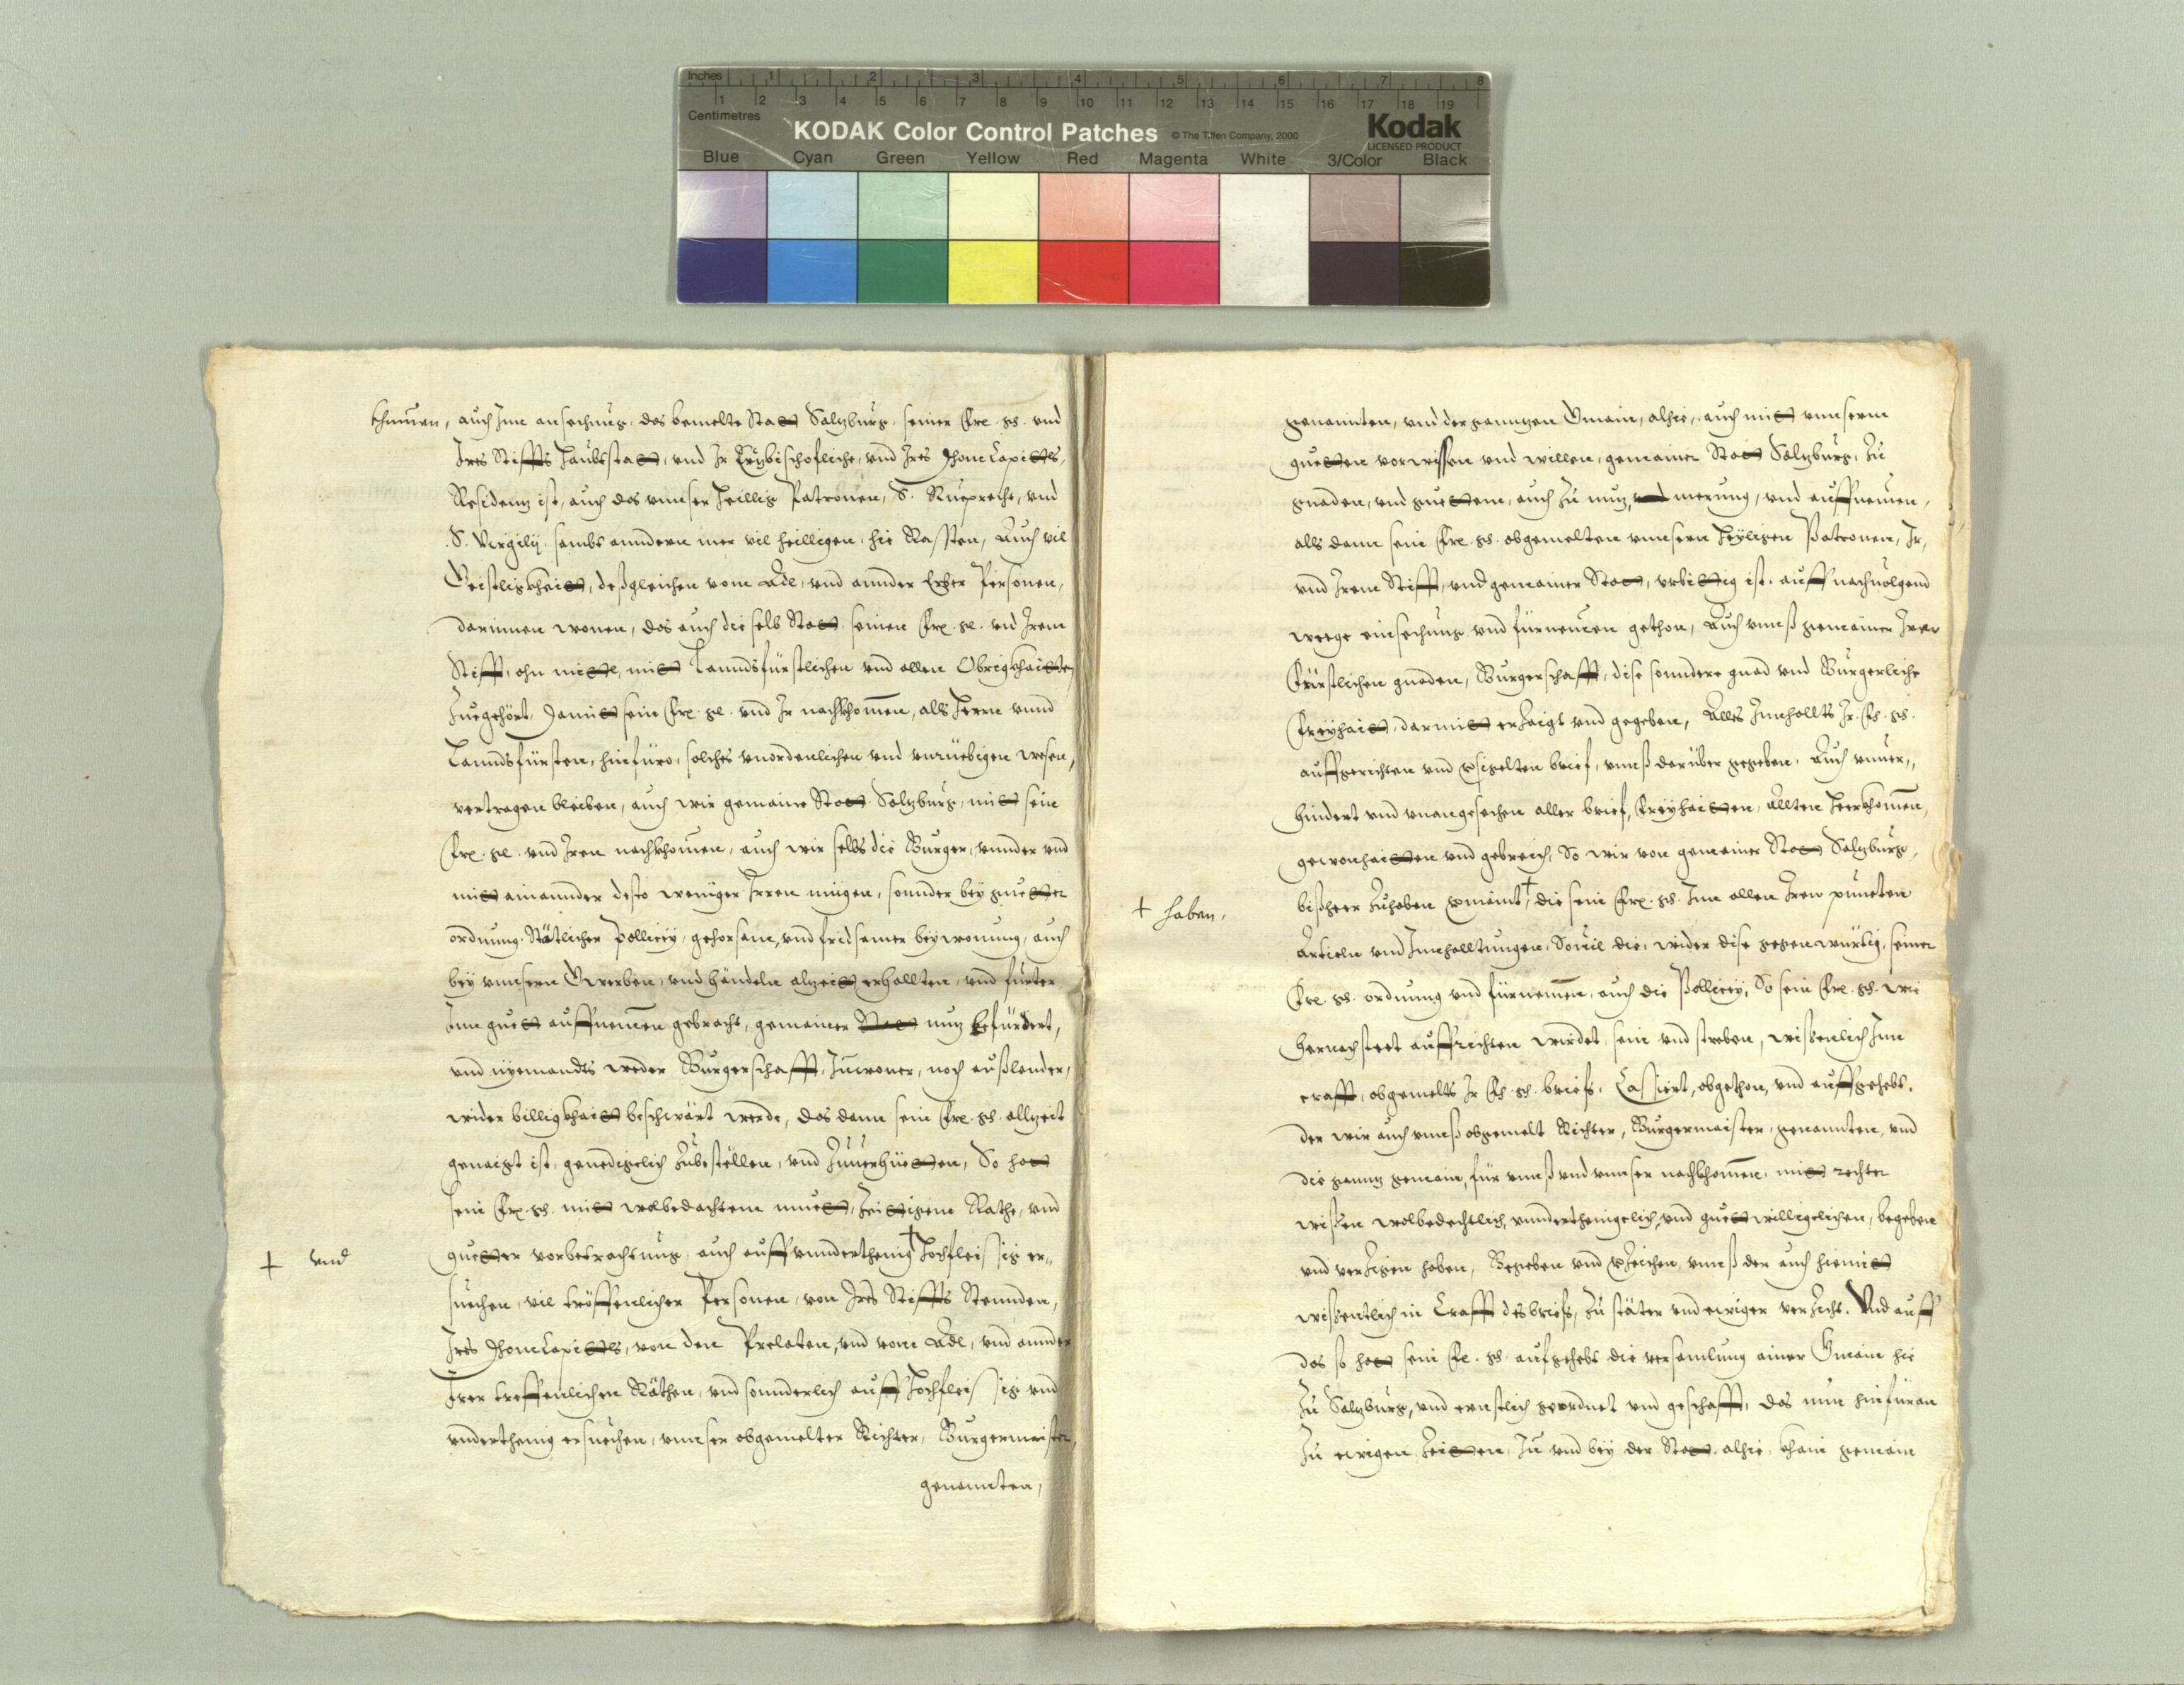 Inches 1 2 3 4 5 6 7 8
Centimetres 1 2 3 4 5 6 7 8 9 10 11 12 13 14 15 16 17 18 19
KODAK Color Control Patches © The Tiffen Company, 2000 Kodak
LICENSED PRODUCT
Blue Cyan Green Yellow Red Magenta White 3/Color Black
khumen, auch Inn ansechung, das bemelte Statt Salzburg, seiner Fre. gd. vnd
Ires Stiffts Haubtstatt, vnd Ir Erzbischofliche, vnd Ires ThomCapittls,
Residenz ist, auch das vnnser heillig Patronen, S. Rueprecht, vnd
S. Virgily, sambt anndern mer vil heilligen, hie Rassten, Auch vil
Geistligkhait, deßgleichen vom Adl, vnd annder Erber Personen,
darinnen wonen, das auch die selb Statt, seinen Fre. ge. vnd Irem
Stifft, ohn mittl, mit Lanndsfürstlichen vnd allen Obrigkhaitten
Zuegehört, Damit sein Fre. ge. vnd Ir nachkhomen, alls Herrn vnnd
Lanndsfürsten, hinfüro, solches vnordenlichen vnd vnrüebigen wesen,
vertragen bleiben, auch wir gemaine Statt Salzburg, mit sein
Fre. ge. vnd Iren nachkhomen, auch wir selbs die Burger, vnnder vnd
mit ainannder desto weniger Irren mügen, sonnder bey guetter
ordnung, Stätlicher pollicey, gehorsam, vnd fridsamer beywonung, auch
bey vnnsern Gwerben, vnd händeln alzeit erhallten, vnd fürter
Inn guett auffnemen gebracht, gemainer Statt nuz befürdert,
vnd nyemandts weder Burgerschafft, Inwoner, noch außlender,
wider billigkhait beschwärt werde, das dann sein Fre. gd. allzeit
genaigt ist, genedigclich Zubestellen, vnd Zuuerhüetten, So hatt
sein Fre. gd. mit wolbedachtem muet, Zeittigem Rathe, vnd
guetter vorbetrachtung, auch auff vnnderthenig + Hochfleissig er-
+ vnd
suechen, vil tröffenlicher Personen, von Ires Stiffts Stennden,
Ires ThomCapittls, von den Prelaten, vnd vom Adl, vnd annder
Irer treffenlichen Räthen, vnd sonnderlich auff Hochfleissig vnd
vnderthenig ersuechen, vnnser obgemelter Richter, Burgermaister,
genannten,
genannten, vnd der ganntzen Gmain, alhie, auch mit vnnserm
guetten vorwissen vnd willen, gemainer Statt Salzburg, Zu
gnaden, vnd guettem, auch Zu nuz, merung, vnd auffnemen,
alls dann sein Fre. gd. obgemelten vnnsern Heyligen Patronen, Ir,
vnd Irem Stifft, vnd gemainer Statt, vrbittig ist, auff nachuolgend
weege einsechung vnd fürnemen gethon, Auch vnnß gemainer Irer
Fürstlichen gnaden, Burgerschafft, dise sonndere gnad vnd Burgerliche
Freyhait, darmit erZaigt vnd gegeben, Alles Innhallts Ir. Fl. gd.
auffgerichten vnd vsigelten brief, vnnß darüber gegeben, Auch vnuer,,
hindert vnd vnangesechen aller brief, Freyhaitten, Allten Herkhomen,
gewonhaitten vnd gebreich, So wir von gemainer Statt Salzburg,
bißheer Zuhaben vmaint, + die sein Fre. gd. Inn allen Iren puncten
+ haben,
Articln vnd Innhalltungen, Souil die, wider dise gegenwürtig, seiner
Fre. gd. ordnung vnd fürnemen, auch die Pollicey, So sein Fre. gd. wie
hernachsteet auffrichten wirdet, sein vnd streben, wissenlich Inn
crafft, obgemelts Ir Fl. gd. briefs, Cassiert, abgethon, vnd auffgehebt,
der wir auch vnnß obgemelt Richter, Burgermaister, genannten, vnd
die gannz gemain, für vnnß vnd vnnser nachkhomen, mit rechter
wissen wolbedechtlich, vnnderthenigclich, vnd guetwilligclichen, begeben
vnd verZigen haben, Begeben vnd vZeichen, vnnß der auch hiemit
wissentlich in Crafft des briefs, Zu stäter vnd ewiger verZicht. Vnd auff
das so hatt sein Fe. gd. aufgehebt die versamlung ainer Gmain hie
Zu Salzburg, vnd ernstlich geordnet vnd geschafft, das nun hinfüran
Zu ewigen Zeitten, Zu vnd bey der Statt, alhie, khain gemain